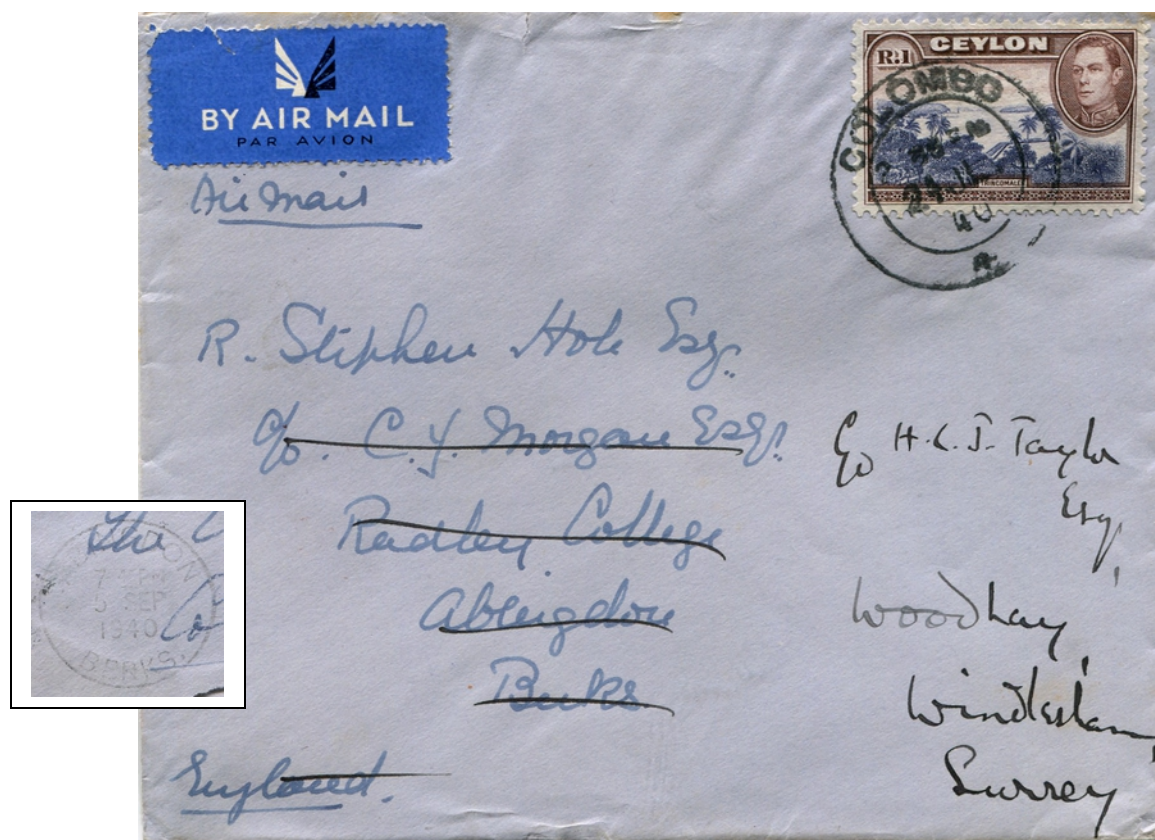 BY AIR MAIL
PAR AVION
Air Mail
CEYLON
R1
TRINCOMALEE
COLOMBO
40
R. Stephen Hole Esq.
c/o. C. J. Morgan Esq.
Radley College
Abingdon
Berks
England.
c/o H. C. J. Taylor
Esq,
Woodhay,
Windlesham,
Surrey
The
5 SEP
1940
BERKS.